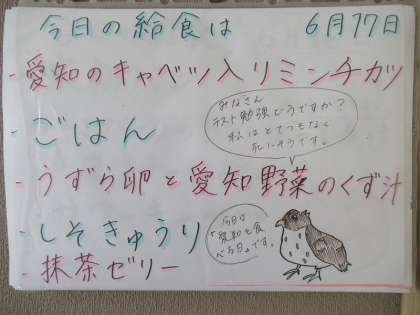 今日の給食は 6月17日
・愛知のキャベツ入りミンチカツ
みなさん
テスト勉強どうですか?
私はとてつもなく
死にそうです。
・ごはん
・うずら卵と愛知野菜のくず汁
・しそきゅうり
今日は
"愛知を食
べる日"です。
・抹茶ゼリー